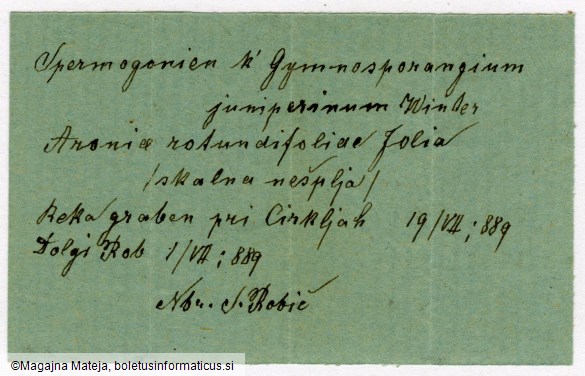 Spermogonien k' Gymnosporangium
juniperinum Winter
Aroniæ rotundifoliae folia
/skalna nešplja/
Reka graben pri Cirkljah 19/VII; 889
Dolgi Rob 1/VII; 889
Nbr. S. Robič
©Magajna Mateja, boletusinformaticus.si